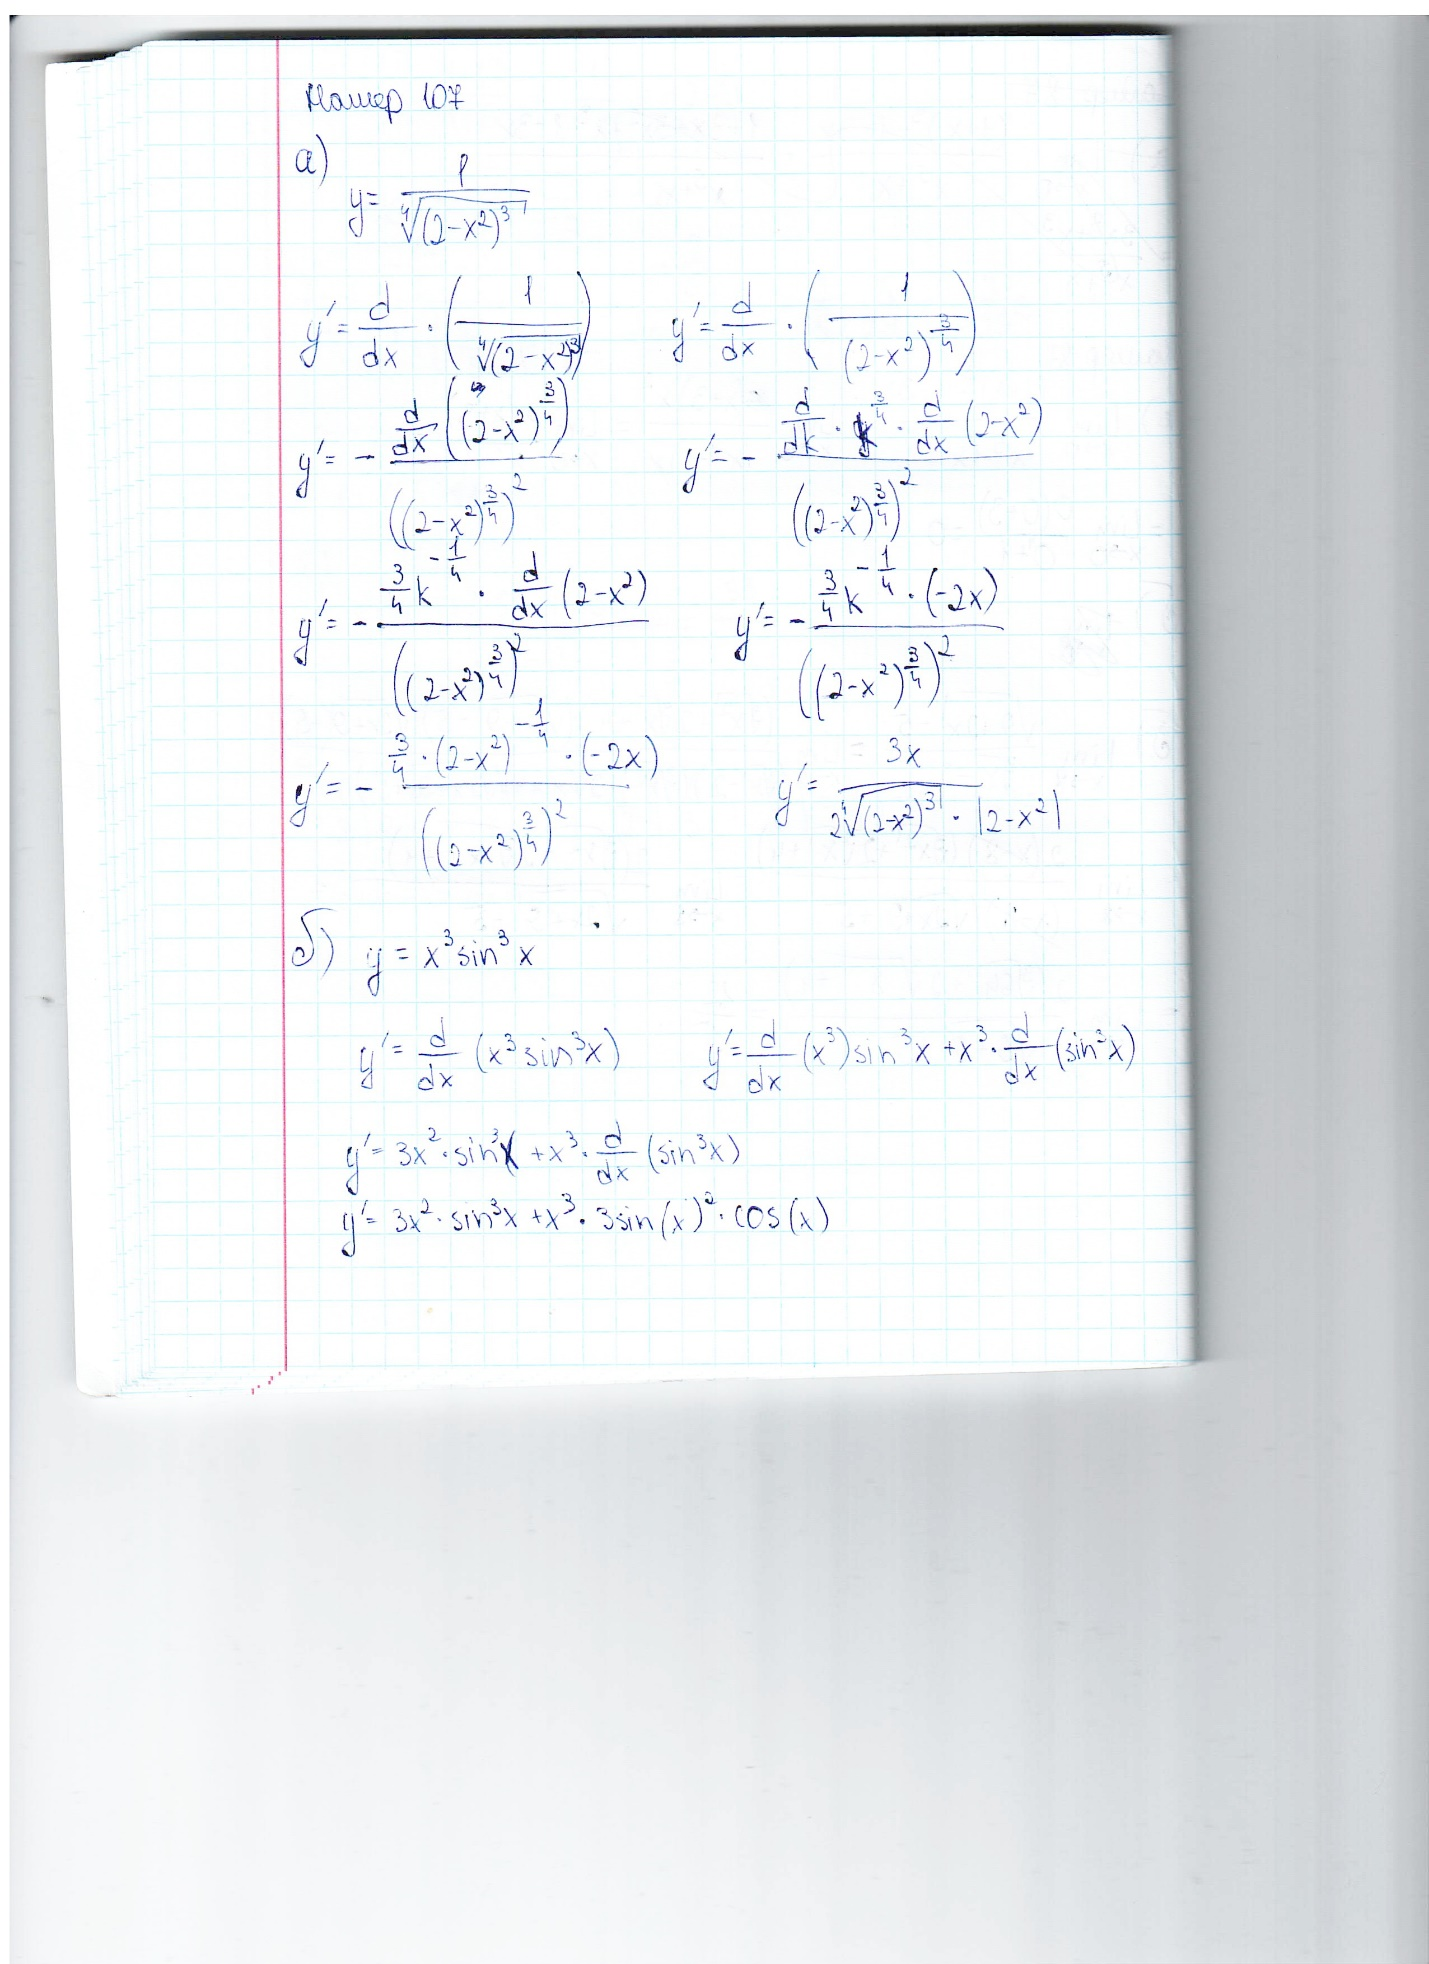 Номер 107
а)
y = 1/∜((2-x²)³)
y' = d/dx · (1/∜((2-x²)³)) y' = d/dx · (1/(2-x²)^(3/4))
y' = - (d/dx((2-x²)^(3/4)))/((2-x²)^(3/4))² y' = - (d/dk · k^(3/4) · d/dx(2-x²))/((2-x²)^(3/4))²
y' = - (3/4 k^(-1/4) · d/dx(2-x²))/((2-x²)^(3/4))² y' = - (3/4 k^(-1/4) · (-2x))/((2-x²)^(3/4))²
y' = - (3/4 · (2-x²)^(-1/4) · (-2x))/((2-x²)^(3/4))² y' = 3x/(2∜((2-x²)³) · |2-x²|)
б) y = x³sin³x
y' = d/dx (x³sin³x) y' = d/dx (x³)sin³x + x³ · d/dx (sin³x)
y' = 3x² · sin³x + x³ · d/dx (sin³x)
y' = 3x² · sin³x + x³ · 3sin(x)² · cos(x)